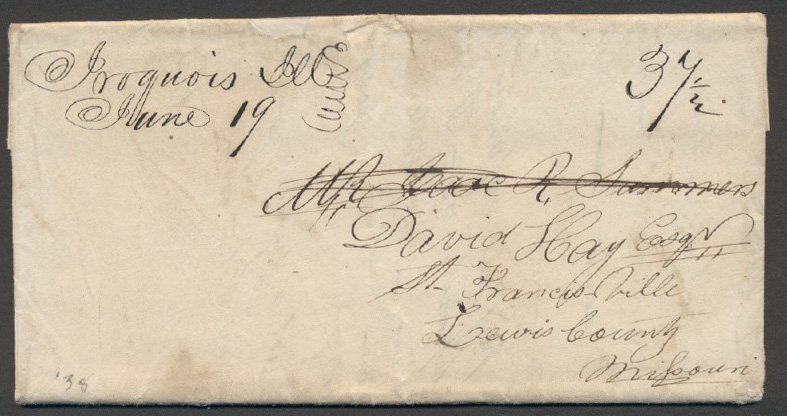 Iroquois Ills
June 19
37 1/2
Mr Isaac R. Summers
David Hay Esqr
St. Francis-Ville
Lewis County
Missouri
'38